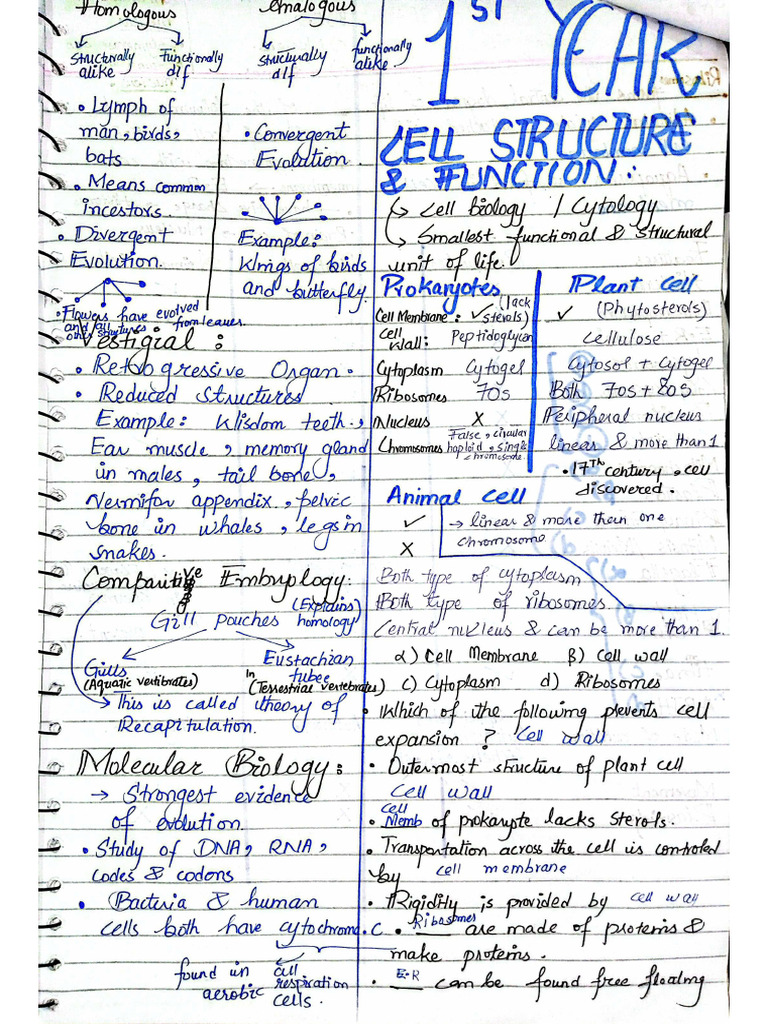 Homologous
Analogous
Structurally alike
Functionally dif
Structurally dif
functionally alike.
• Lymph of
man, birds,
bats
• Means common
incestors.
• Divergent
Evolution.
• Flowers have evolved
from leaves.
• Convergent
Evolution.
Example:
Wings of birds
and butterfly.
Vestigial:
• Retrogressive Organ.
• Reduced Structures.
Example: Wisdom teeth,
Ear muscle, memory gland
in males, tail bone,
Vermifor appendix, pelvic
bone in whales, legs in
snakes.
Comparitive Embryology:
(Explains homology)
Gill pouches
Gills
(Aquatic vertibrates)
Eustachian
tubee
In (Terrestrial vertebrates)
This is called theory of
Recapitulation.
Molecular Biology:
→ Strongest evidence
of evolution.
• Study of DNA, RNA,
codes & codons
• Bacteria & human
cells both have cytochrome.C
found in aerobic
all respiration cells.
1ST YEAR
CELL STRUCTURE
& FUNCTION:
Cell biology / Cytology
Smallest functional & structural
unit of life.
Prokaryotes
Plant cell
Cell Membrane: ✓ (lack sterols)
✓ (Phytosterols)
Cell Wall: Peptidoglycan
cellulose
Cytoplasm Cytogel
Cytosol + Cytogel
Ribosomes 70s
Both 70s + 80s
Nucleus X
Peripheral nucleus
Chromosomes False, circular
haploid, single chromosome
linear & more than 1
• 17Th century, cell
discovered.
Animal cell
✓
X
→ linear & more than one
chromosome
Both type of cytoplasm
Both type of ribosomes
Central nucleus & can be more than 1.
a) Cell Membrane B) Cell wall
c) Cytoplasm d) Ribosomes
• Which of the following prevents cell
expansion ? Cell wall
• Outermost structure of plant cell
Cell wall
• Cell Memb of prokaryote lacks sterols.
• Transportation across the cell is controled
by cell membrane
• Rigidity is provided by cell wall
• Ribosomes are made of proteins &
make proteins.
• E.R can be found free floating